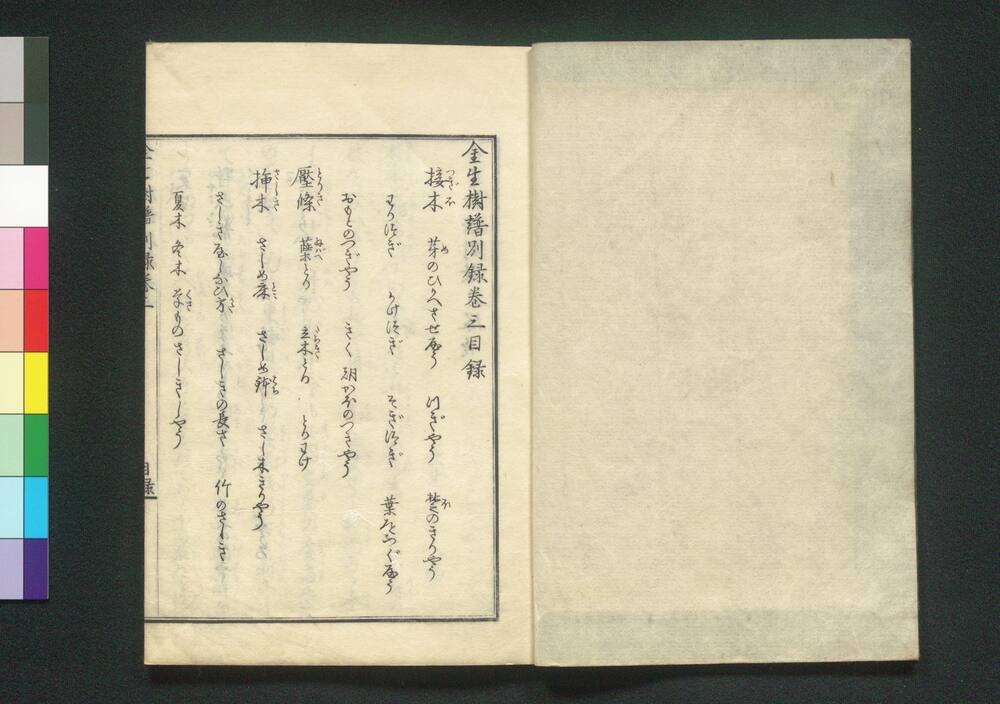 金生樹譜別録巻三目録
接木 芽のひかへさせやう つぎやう 穂のきりやう
わりつぎ よけつぎ そぎつぎ 葉をつぐやう
おもとのつぎやう きく 朝がほのつぎやう
壓條 蘖とり 立木とり とりわけ
挿木 さしめ床 さしめ鉢 さし木きりやう
さしきやしなひ方 さしきの長さ 竹のさしき
夏木 冬木 草ものさしきしやう
目録